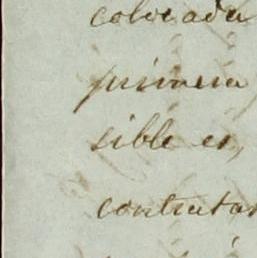 colocada
primera
sible es,
contratar